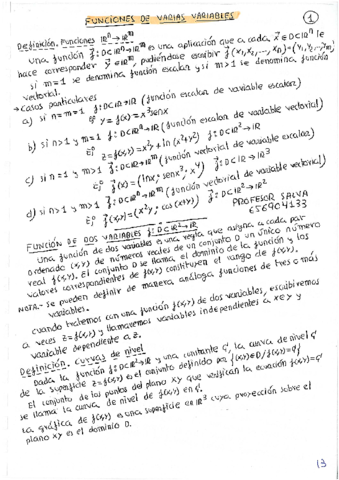 FUNCIONES DE VARIAS VARIABLES
1
Definición. Funciones ℝⁿ→ℝᵐ
Una función f: D⊂ℝⁿ→ℝᵐ es una aplicación que a cada x∈D⊂ℝⁿ le
hace corresponder y∈ℝᵐ, pudiéndose escribir f(x₁,x₂,...,xₙ)=(y₁,y₂,...,yₘ)
si m=1 se denomina función escalar y si m>1 se denomina función
vectorial.
→ Casos particulares
a) si n=m=1 f: D⊂ℝ→ℝ (función escalar de variable escalar)
Ejº y=f(x)=x²senx
b) si n>1 y m=1 f: D⊂ℝⁿ→ℝ (función escalar de variable vectorial)
Ejº z=f(x,y)=x²y+ln(x²+y²) f: D⊂ℝ²→ℝ
c) si n=1 y m>1 f: D⊂ℝ→ℝᵐ (función vectorial de variable escalar)
Ejº f(x)=(lnx; senx³, x⁴) f: D⊂ℝ→ℝ³
d) si n>1 y m>1 f: D⊂ℝⁿ→ℝᵐ (función vectorial de variable vectorial)
Ejº f(x,y)=(x²y; cos(x+y)) f: D⊂ℝ²→ℝ²
PROFESOR SALVA
656904133
FUNCIÓN DE DOS VARIABLES f: D⊂ℝ²→ℝ
Una función de dos variables es una regla que asigna a cada par
ordenado (x,y) de números reales de un conjunto D un único número
real f(x,y). El conjunto D se llama el dominio de la función y los
valores correspondientes de f(x,y) constituyen el rango de f(x,y).
NOTA.- Se pueden definir de manera análoga funciones de tres o más
variables.
Cuando tratemos con una función f(x,y) de dos variables, escribiremos
a veces z=f(x,y) y llamaremos variables independientes a x e y
variable dependiente a z.
Definición. Curvas de nivel
Dada la función f: D⊂ℝ²→ℝ y una constante, la curva de nivel
de la superficie z=f(x,y) es el conjunto definido
El conjunto de los puntos del plano XY que verifican la ecuación f(x,y)=
se llama la curva de nivel de f(x,y) en
La gráfica de f(x,y) es una superficie en ℝ³ cuya proyección sobre el
plano xy es el dominio D.
13